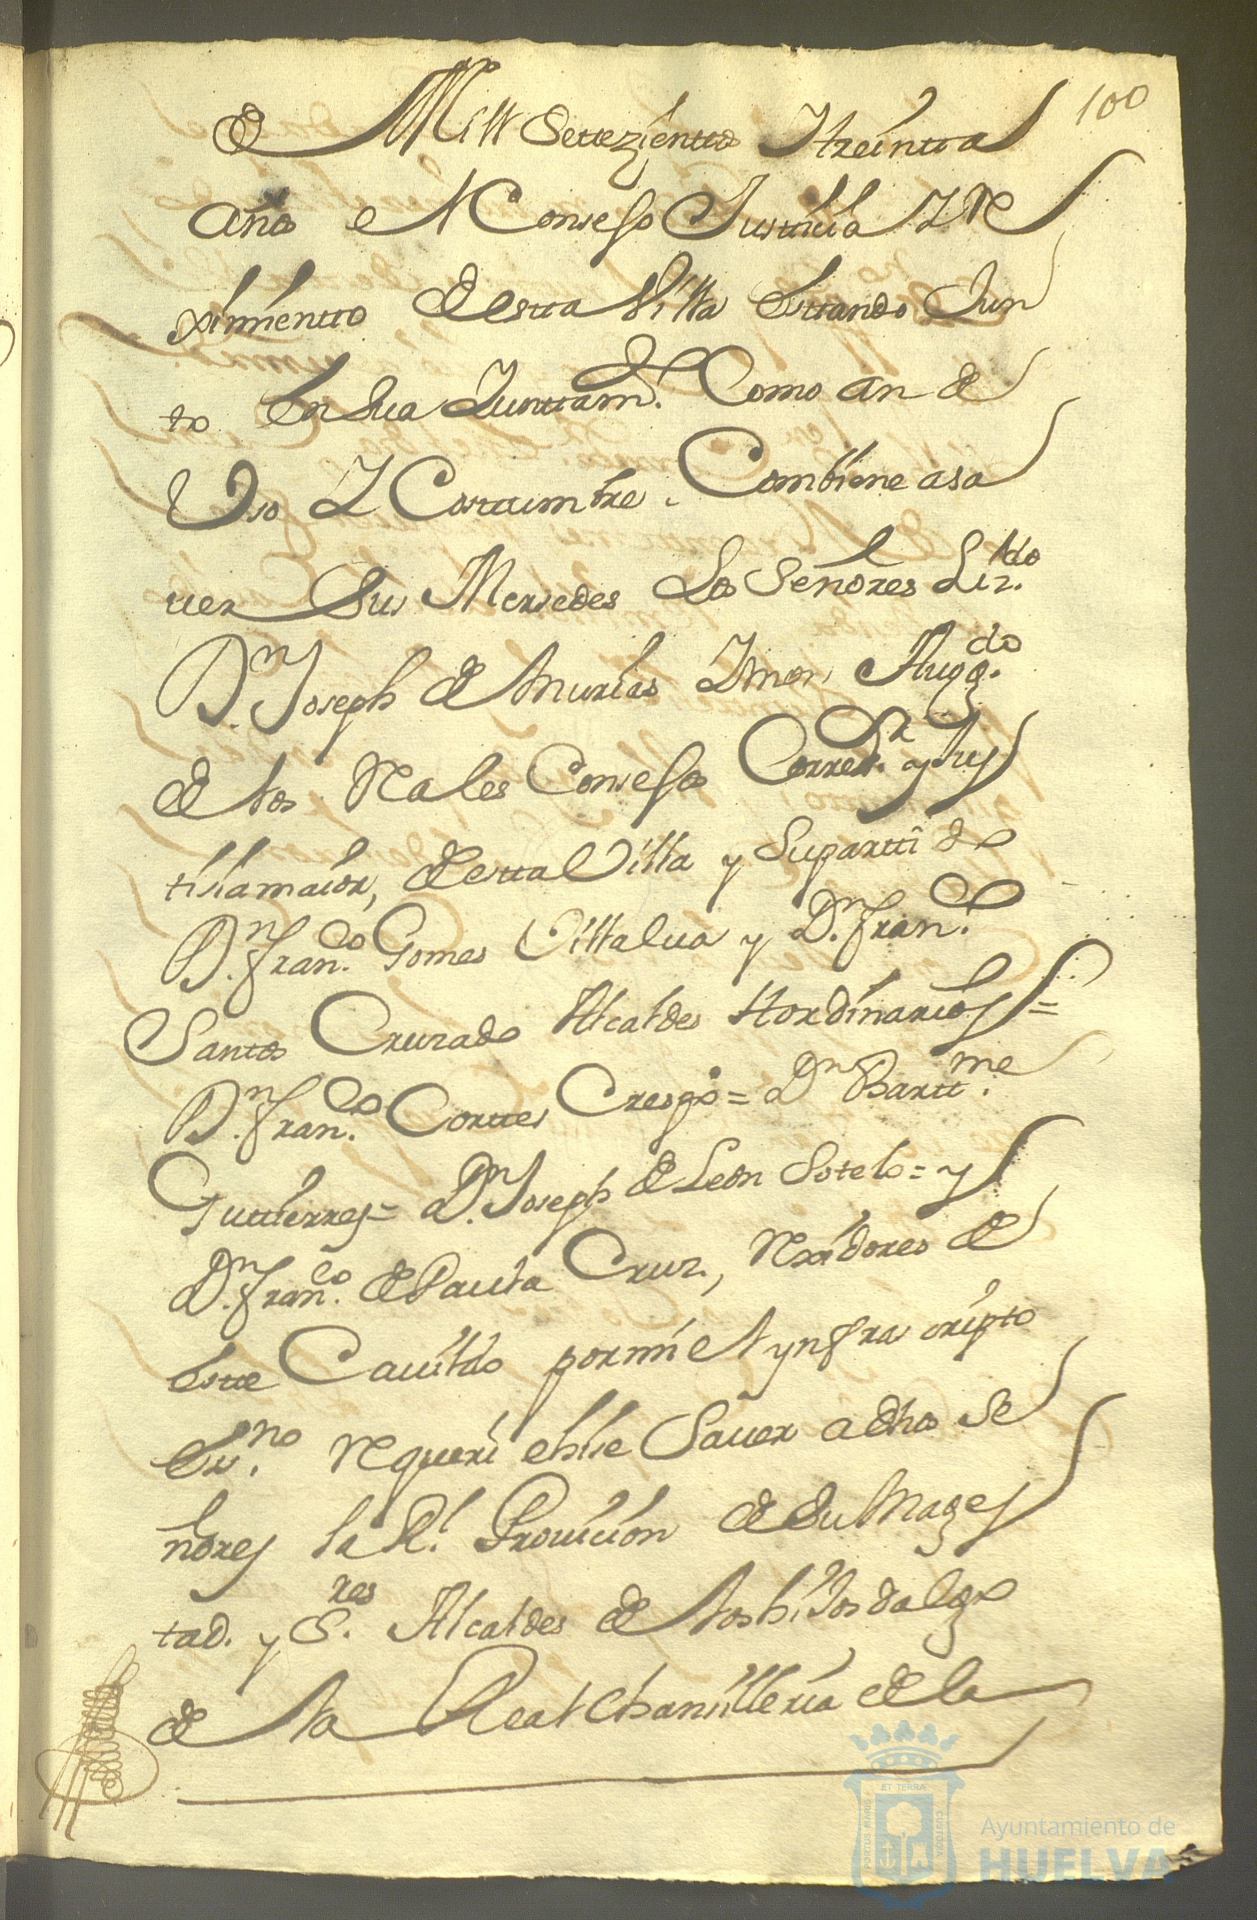 100
de Mill Settezientto Ytreintta
años el Consejo Justticia Y Re
ximientto de estta Villa Esttando Jun
to En Sua Junttam.to Como an de
Uso Y Costtumbre. Combiene asa
uer Sus Mersedes Los Señores Liz.do
D.n Joseph de Murias Ymon, Auog.do
de los Reales Consejos Corred.r y Jus
tisiamaior, de estta Villa y Supartti do
D.n Fran.co Gomes Villalua y D.n Fran.co
Santos Cruzado Alcaldes Hordinarios =
D.n Fran.co Corttes Crespo = D.n Bartt.me
Guttierres = D.n Joseph de Leon Sotelo = y
D.n Fran.co de Paula Cruz, Rexidores de
Estte Cauildo por mi el ynfra cripto
Es.no Requeri ehise Sauer adhos Se
ñores la R.l Prouicion de Su Mages
tad. y S.res Alcaldes de los hiJos dalgo
de la Real Chansilleria de la
ET TERRÆ
CUSTODIA
Ayuntamiento de
HUELVA